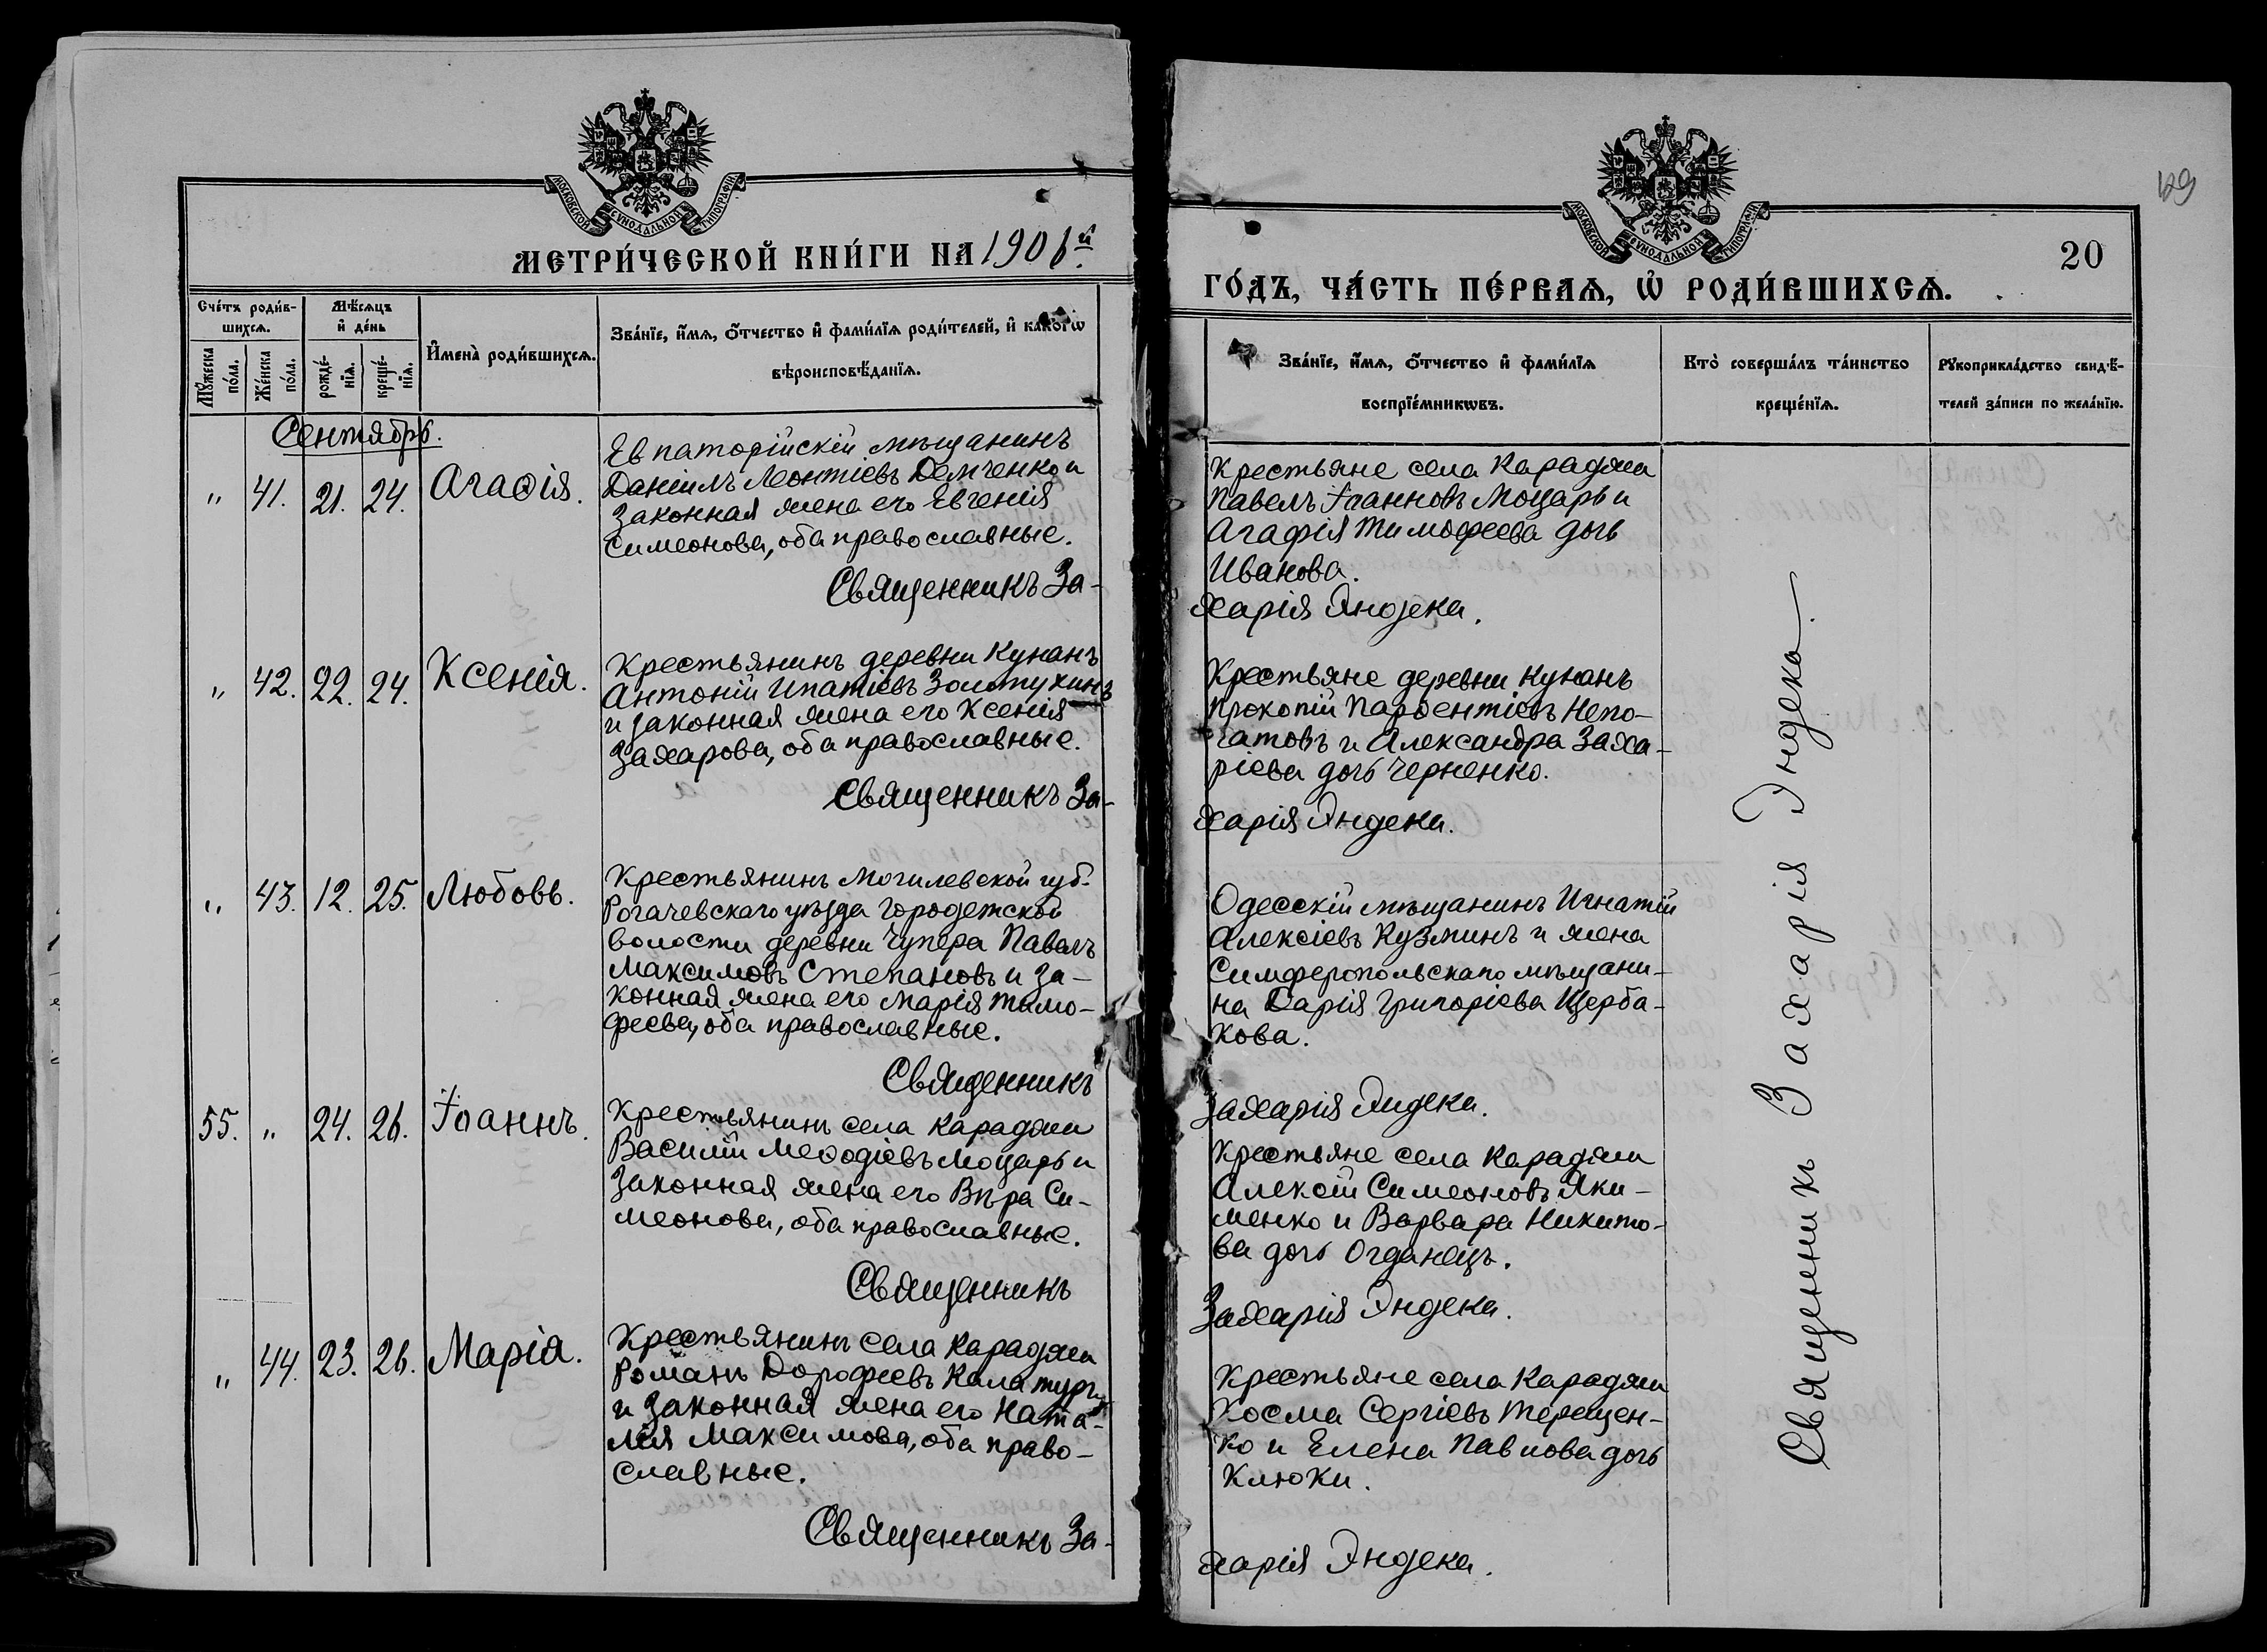 МОСКОВСКОЙ СѴНОДАЛЬНОЙ ТИПОГРАФІИ
МЕТРИ́ЧЕСКОЙ КНИ́ГИ НА 1906й
Сче́тъ роди́в-
шихсѧ.
Мꙋ́жеска
по́ла.
Же́нска
по́ла.
Мѣ́сѧцъ
и҆ де́нь
рожде́-
нїѧ.
креще́-
нїѧ.
И҆мена̀ роди́вшихсѧ.
Зва́нїе, и҆́мѧ, ѻ҆́тчество и҆ фами́лїѧ роди́телей, и҆ како́гѡ
вѣроисповѣ́данїѧ.
Сентябрь.
" 41. 21. 24. Агаѳія.
Евпаторійскій мѣщанинъ
Даніилъ Леонтіевъ Демченко и
законная жена его Евгенія
Симеонова, оба православные.
Священникъ За-
" 42. 22. 24. Ксенія.
Крестьянинъ деревни Кунанъ
Антоній Ипатіевъ Золотухинъ
и законная жена его Ксенія
Захарова, оба православные.
Священникъ За-
" 43. 12. 25. Любовь.
Крестьянинъ Могилевской губ.
Рогачевскаго уѣзда Городетской
волости деревни Чупера Павелъ
Максимовъ Степановъ и за-
конная жена его Марія Тимо-
феева, оба православные.
Священникъ
55. " 24. 26. Іоаннъ.
Крестьянинъ села Караджи
Василій Меѳодіевъ Моцарь и
законная жена его Вѣра Си-
меонова, оба православные.
Священникъ
" 44. 23. 26. Марія.
Крестьянинъ села Караджи
Романъ Дорофеевъ
и законная жена его Ната-
лія Максимова, оба право-
славные.
Священникъ За-
129
МОСКОВСКОЙ СѴНОДАЛЬНОЙ ТИПОГРАФІИ
20
ГО́ДЪ, ЧА́СТЬ ПЕ́РВАѦ, Ѡ҆ РОДИ́ВШИХСѦ.
Зва́нїе, и҆́мѧ, ѻ҆́тчество и҆ фами́лїѧ
воспрїе́мникѡвъ.
Кто̀ соверша́лъ та́инство
креще́нїѧ.
Рꙋкоприкла́дство свидѣ́-
телей за́писи по жела́нїю.
Крестьяне села Караджи
Павелъ Іоанновъ Моцарь и
Агафія Тимофеева дочь
Иванова.
харія Яндека.
Крестьяне деревни Кунанъ
Прокопій Парѳентіевъ Непо-
чатовъ и Александра Заха-
ріева дочь Черненко.
харія Яндека.
Одесскій мѣщанинъ Игнатій
Алексіевъ Кузминъ и жена
Симферопольскаго мѣщани-
на Дарія Григоріева Щерба-
кова.
Захарія Яндека.
Крестьяне села Караджи
Алексій Симеоновъ Яки-
менко и Варвара Никито-
ва дочь Огданецъ.
Захарія Яндека.
Крестьяне села Караджи
Косма Сергіевъ Терещен-
ко и Елена Павлова дочь
Клюки.
харія Яндека.
Священникъ Захарія Яндека.